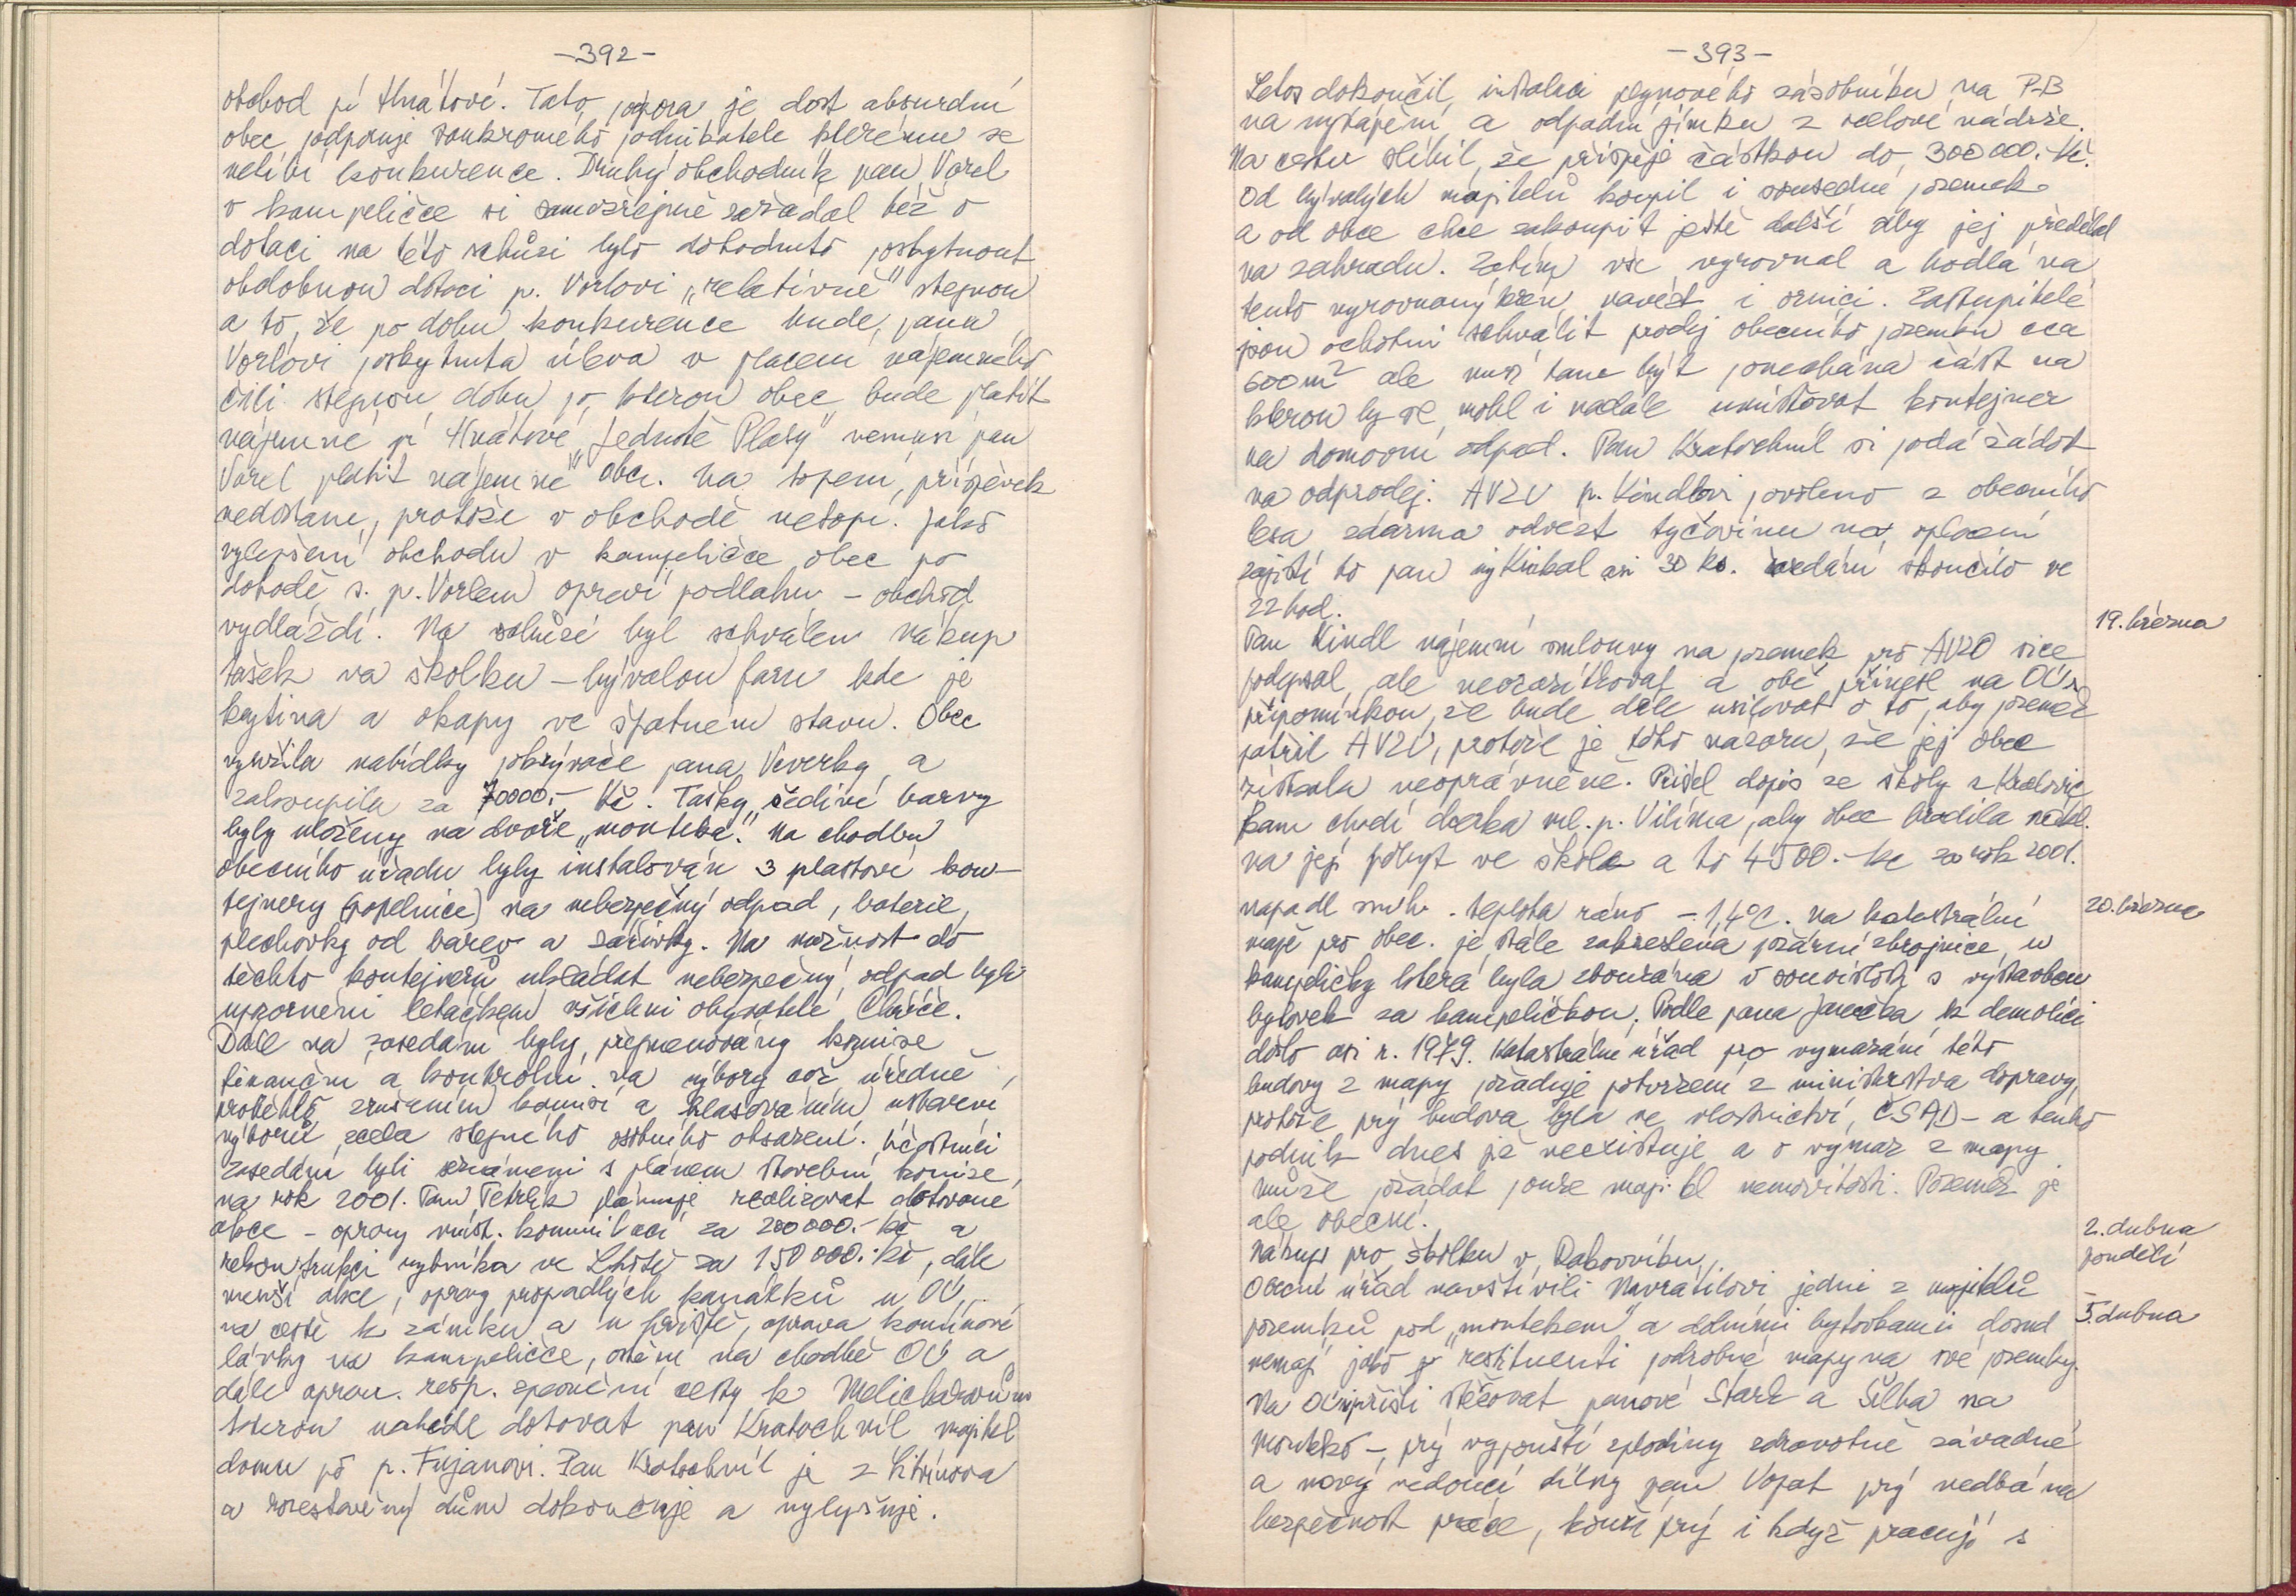 -392-
obchod pí Hnátové. Tato podpora je dost absurdní
obec podporuje soukromého podnikatele kterému se
nelíbí konkurence. Druhý obchodník pan Vorel
v kampeličce si samozřejmě zažádal též o
dotaci na této schůzi bylo dohodnuto poskytnout
obdobnou dotaci p. Vorlovi „relativně" stejnou
a to, že po dobu konkurence bude panu
Vorlovi poskytnuta úleva v placení nájemného
čili stejnou dobu po kterou obec bude platit
nájemné pí Hnátové „Jednotě Plasy" nemusí pan
Vorel platit nájemné obci. Na topení, příspěvek
nedostane, protože v obchodě netopí. Jako
vylepšení obchodu v kampeličce obec po
dohodě s. p. Vorlem opraví podlahu - obchod
vydláždí. Na schůzi byl schválen nákup
tašek na školku - bývalou faru kde je
krytina a okapy ve špatném stavu. Obec
využila nabídky pokrývače pana Veverky a
zakoupila za 70000.- Kč. Tašky šedivé barvy
byly uloženy na dvoře „monteka". Na chodbu
obecního úřadu byly instalován 3 plastové kon-
tejnery (popelnice) na nebezpečný odpad, baterie,
plechovky od barev a zářivky. Na možnost do
těchto kontejnerů ukládat nebezpečný odpad byli
upozorněni letáčkem všichni obyvatelé Chříče.
Dále na zasedání byly přejmenovány komise
finanční a kontrolní na výbory což úředně
proběhlo zrušením komisí a hlasováním ustavení
výborů zcela stejného osobního obsazení. Účastníci
zasedání byli seznámeni s plánem stavební komise
na rok 2001. Pan Tetrlík plánuje realizovat dotované
akce - opravy míst. komunikací za 200000.- Kč a
rekonstrukci rybníka ve Lhotě za 150000.- Kč, dále
menší akce, opravy propadlých kanálků u OÚ,
na cestě k zámku a u hřiště, oprava komínové
lávky na kampeličce, osvětlení na chodbě OÚ a
dále oprav. resp. zpevnění cesty k Melicharovům
kterou nahodil dotovat pan Kratochvíl majitel
domu po p. Fujanovi. Pan Kratochvíl je z Litvínova
a rozestavěný dům dokončuje a vylepšuje.
-393-
Letos dokončil instalaci plynového zásobníku na P-B
na vytápění a odpadní jímku z ocelové nádrže.
Na cestu slíbil, že přispěje částkou do 300000.- Kč.
Od bývalých majitelů koupil i sousední pozemek
a od obce chce zakoupit ještě další aby jej předělal
na zahradu. Zatím vše vyrovnal a hodlá na
tento vyrovnaný terén navézt i ornici. Zastupitelé
jsou ochotni schválit prodej obecního pozemku cca
600m² ale musí tam být ponechána část na
kterou by se mohl i nadále umísťovat kontejner
na domovní odpad. Pan Kratochvíl si podá žádost
na odprodej. AVZO p. Kindlovi povoleno z obecního
lesa zdarma odvézt tyčovinu na oplocení
zajistí to pan asi 30 ks. Zasedání skončilo ve
22 hod.
19. března
Pan Kindl nájemní smlouvy na pozemek pro AVZO sice
podepsal ale neorazítkoval a obě přinesl na OÚ s
připomínkou, že bude dále usilovat o to, aby pozemek
patřil AVZO, protože je toho názoru, že jej obec
získala neoprávněně. Přišel dopis ze školy z Kralovic
kam chodí dcerka ml. p. Vilíma, aby obec hradila nákl.
na její pobyt ve škole a to 4500.- Kč za rok 2001.
20. března
napadl sníh. teplota ráno - 1,4°C. Na katastrální
mapě pro obec. je stále zakreslená požární zbrojnice u
kampeličky která byla zbourána v souvislosti s výstavbou
bytovek za kampeličkou. Podle pana Janečka k demolici
došlo asi r. 1979. Katastrální úřad pro vymazání této
budovy z mapy požaduje potvrzení z ministerstva dopravy,
protože prý budova byla ve vlastnictví ČSAD - a tento
podnik dnes již neexistuje a o výmaz z mapy
může požádat pouze majitel nemovitosti. Pozemek je
ale obecní.
2. dubna
pondělí
Nákup pro školku v Rakovníku.
Obecní úřad navštívili Navrátilovi jedni z majitelů
5. dubna
pozemků pod „montekem" a dolními bytovkami dosud
nemají jako restituenti podrobné mapy na své pozemky.
Na OÚ přišli stěžovat pánové Stark a Šilha na
Monteko -, prý vypouští zplodiny zdravotně závadné
a nový vedoucí dílny pan Vopat prý nedbá na
bezpečnost práce, kouří prý i když pracují s